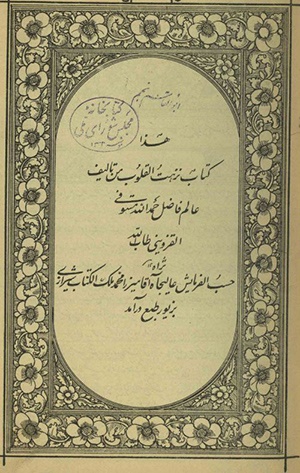 کتابخانه
مجلس شورای ملی
هذا
کتاب نزهت القلوب من تالیف
عالم فاضل حمدالله مستوفی
القزوینی طاب الله
ثراه
حسب الفرمایش عالیجاه آقا میرزا محمد ملک الکتاب شیرازی
بزیور طبع درآمد